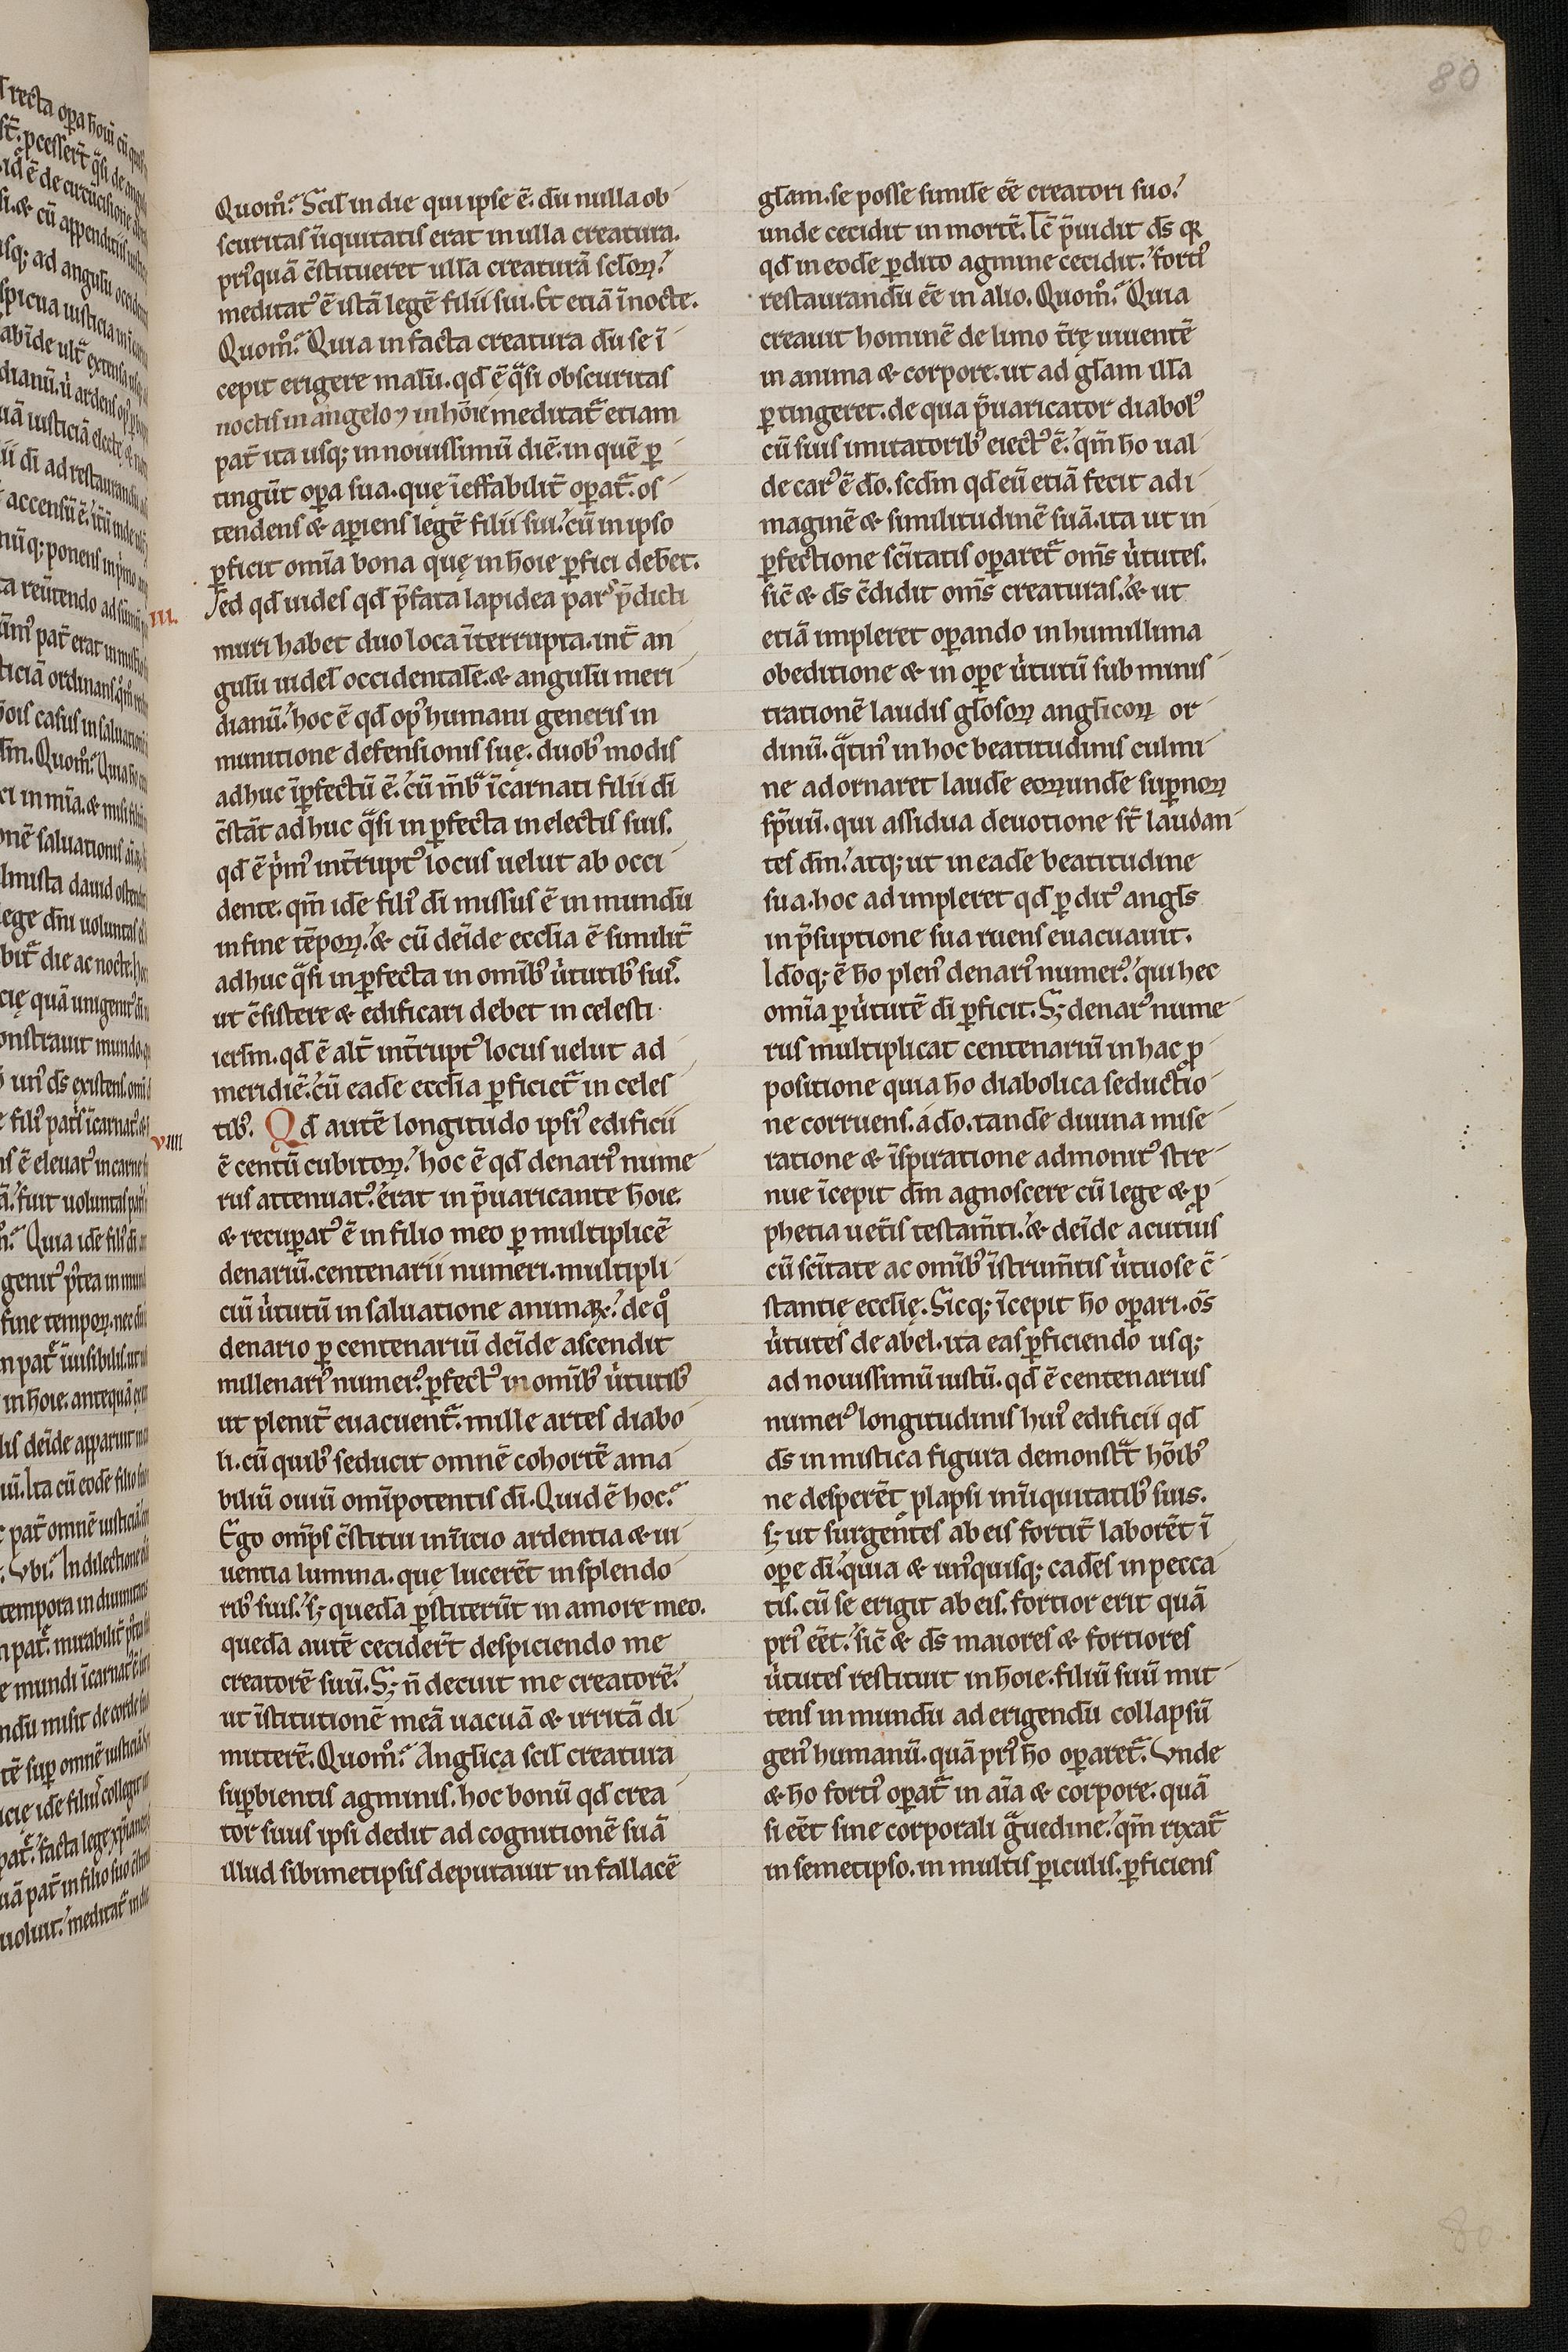 80
Quom̊. Scil̄ in die qui ipse ē. dū nulla ob
scuritas īiquitatis erat in ulla creatura.
pri᷒quā c̄stitueret ulla creaturā sclōꝝ.
meditat᷒ ē istā legē filii sui. Et etiā ī nocte.
Quom̊. Quia in facta creatura dū se ī
cepit erigere malū. qđ ē q̄si obscuritas
noctis in angelo ⁊ in hoīe meditat̄ etiam
pat̄ ita usq; in nouissimū diē. in quē ꝑ
tingūt oꝑa sua. quę īeffabilit̄ oꝑat̄. os
tendens & aꝑiens legē filii sui. cū in ipso
ꝑficit om̄ia bona quę in hoīe ꝑfici debet.
III.
Sed qđ uides qđ p̄fata lapidea par᷒ p̄dicti
muri habet duo loca īterrupta. int̄ an
gulū uidel̄ occidentalē. & angulū meri
dianū. hoc ē qđ op᷒ humani generis in
munitione defensionis suę. duob᷒ modis
adhuc īꝑfectū ē. cū mēb̄ īcarnati filii dī
c̄stāt adhuc q̄si inꝑfecta in electis suis.
qđ ē pⁱm᷒ int̄rupt᷒ locus uelut ab occi
dente. qm̄ idē fili᷒ dī missus ē in mundū
in fine tēpoꝝ. & cū deīde eccl̄ia ē similit̄
adhuc q̄si inꝑfecta in omīb᷒ ůtutib᷒ suis.
ut c̄sistere & edificari debet in celesti
ierl̄m. qđ ē alt̄ int̄rupt᷒ locus uelut ad
meridiē. cū eadē eccl̄ia ꝑficiet̄ in celes
VIIII
tib᷒. Qđ autē longitudo ipsi᷒ edificii
ē centū cubitoꝝ. hoc ē qđ denari᷒ nume
rus attenuat᷒ erat in p̄uaricante hoīe.
& recuꝑat᷒ ē in filio meo ꝑ multiplicē
denariū. centenarii numeri. multipli
ciū ůtutū in saluatione animaꝝ. de qͦ
denario ꝑ centenariū deīde ascendit
millenari᷒ numer᷒. ꝑfect᷒ in omīb᷒ ůtutib᷒
ut plenit̄ euacuent̄. mille artes diabo
li. cū quib᷒ seducit omnē cohortē ama
biliū ouiū omīpotentis dī. Quid ē hoc.
Ego omp̄s c̄stitui in īicio ardentia & ui
uentia lumina. quę lucerēt in splendo
rib᷒ suis. s; quedā ꝑstiterūt in amore meo.
quedā autē cecidert̄ despiciendo me
creatorē suū. S; n̄ decuit me creatorē.
ut īstitutionē meā uacuā & irritā di
mitterē. Quom̊. Anglica scil̄ creatura
suꝑbientis agminis. hoc bonū qđ crea
tor suus ipsi dedit ad cognitionē suā
illud sibimetipsis deputauit in fallacē
gl̄am. se posse similē eē creatori suo.
unde cecidit in mortē. Ic̄ p̄uidit d̄s qꝛ
qđ in eodē ꝑdito agmine cecidit. forti᷒
restaurandū eē in alio. Quom̊. Quia
creauit hominē de limo t̄rę uiuentē
in anima & corpore. ut ad gl̄am illā
ꝑtingeret. de qua p̄uaricator diabol᷒
cū suis imitatorib᷒ eiect᷒ ē. qm̄ ho ual
de car᷒ ē do. scd̄m qđ eū etiā fecit ad i
maginē & similitudinē suā. ita ut in
ꝑfectione scītatis oꝑaret̄ om̄s ůtutes.
sic̄ & d̄s c̄didit om̄s creaturas. & ut
etiā impleret oꝑando in humillima
obeditione & in oꝑe ůtutū sub minis
trationē laudis gl̄osoꝝ anglicoꝝ or
dinū. q̄tin᷒ in hoc beatitudinis culmi
ne adornaret laudē eoꝝundē suꝑnoꝝ
sp̄iuū. qui assidua deuotione st̄ laudan
tes dm̄. atq; ut in eadē beatitudine
sua. hoc adimpleret qđ ꝑdit᷒ angl̄s
in p̄suptione sua ruens euacuauit.
Idoq; ē ho plen᷒ denari᷒ numer᷒. qui hec
om̄ia ꝑ ůtutē dī ꝑficit. S; denar᷒ nume
rus multiplicat centenariū in hac ꝓ
positione quia ho diabolica seductio
ne corruens. a do. tandē diuina mise
ratione & īspiratione admonit᷒ stre
nue īcepit dm̄ agnoscere cū lege & ꝓ
phetia uet̄is testam̄ti. & deīde acutius
cū scītate ac omīb᷒ īstrum̄tis ůtuose c̄
stantię eccl̄ię. Sicq; īcepit ho oꝑari. ōs
ůtutes de abel. ita eas ꝑficiendo usq;
ad nouissimū iustū. qđ ē centenarius
numer᷒ longitudinis hui᷒ edificii qđ
d̄s in mistica figura demonst̄t hoīb᷒
ne desperēt plapsi in īiquitatib᷒ suis.
s; ut surgentes ab eis fortit̄ laborēt ī
oꝑe dī. quia & un᷒quisq; cadēs in pecca
tis. cū se erigit ab eis. fortior erit quā
pri᷒ eēt. sic̄ & d̄s maiores & fortiores
ůtutes restituit in hoīe. filiū suū mit
tens in mundū ad erigendū collapsū
gen᷒ humanū. quā pri᷒ ho oꝑaret̄. Vnde
& ho forti᷒ oꝑat̄ in aīa & corpore. quā
si eēt sine corporali g̊uedine. qm̄ rixat̄
in semetipso. in multis ꝑiculis. ꝑficiens
80